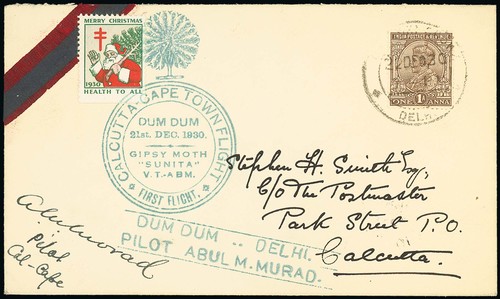 MERRY CHRISTMAS
1930
HEALTH TO ALL
INDIA POSTAGE & REVENUE
ONE 1A ANNA
DEC.30
DELHI
CALCUTTA-CAPE TOWN FLIGHT
DUM DUM
21st. DEC. 1930.
GIPSY MOTH
"SUNITA"
V.T.-ABM.
FIRST FLIGHT.
Stephen H. Smith Esq,
C/o The Postmaster
Park Street P.O.
Calcutta.
DUM DUM -- DELHI.
PILOT ABUL M. MURAD.
Pilot
Cal-Cape